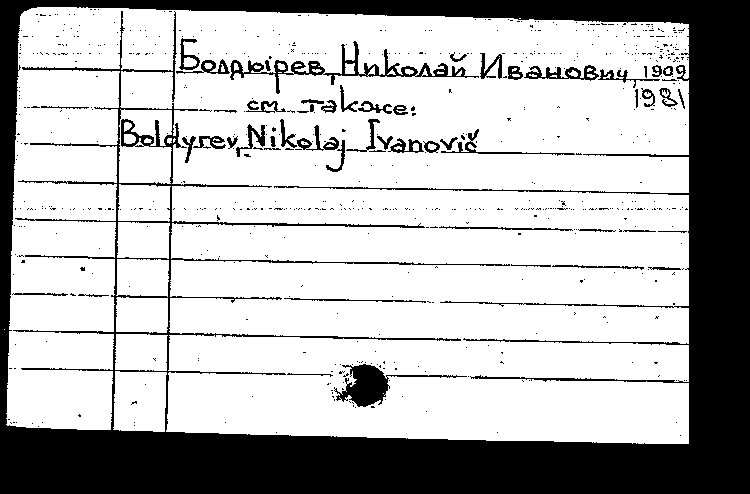 Болдырев, Николай Иванович, 1909
1981
см. также:
Boldyrev, Nikolaj Ivanovič